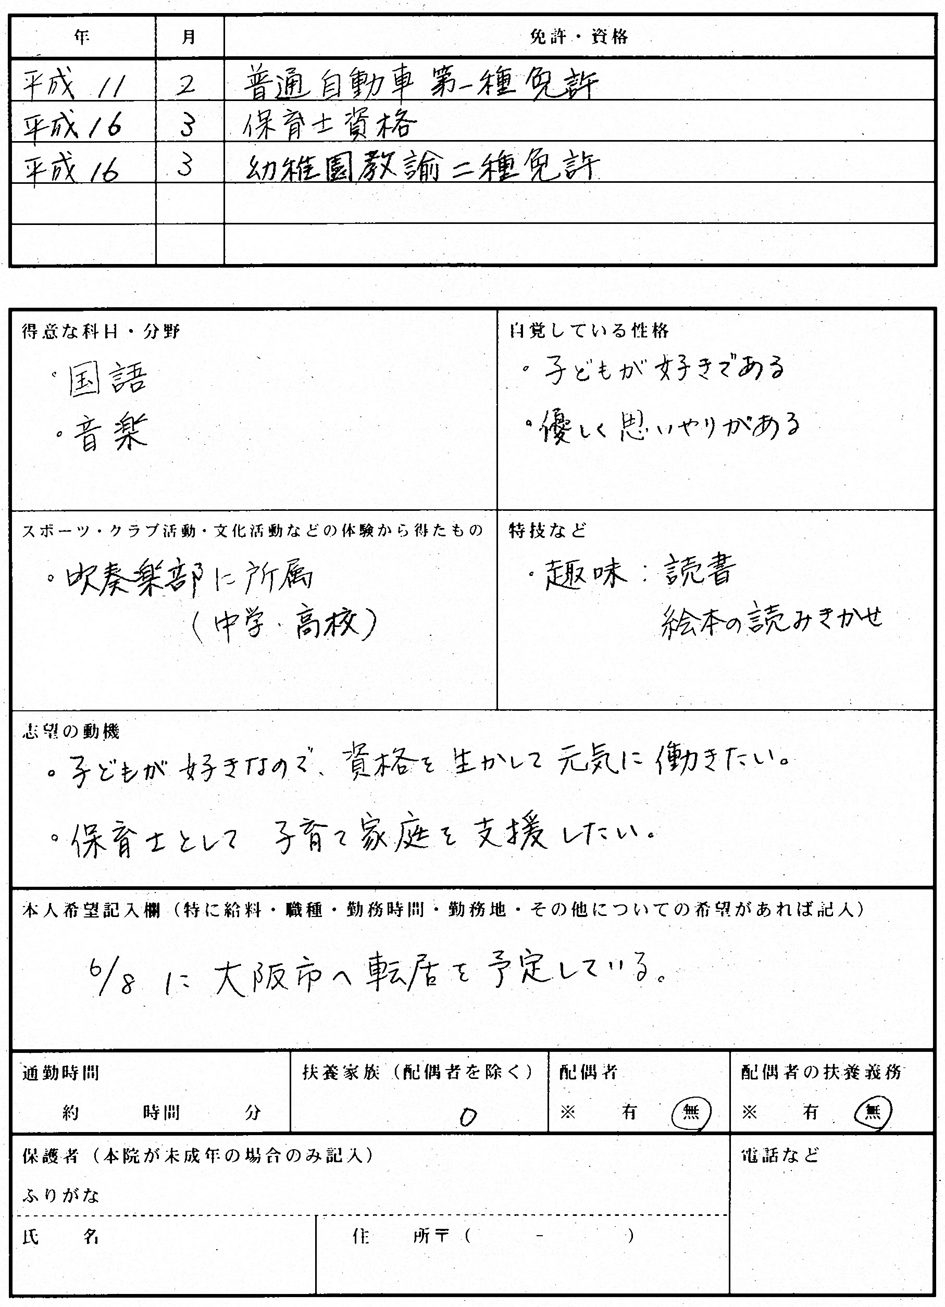 年 月 免許・資格
平成11 2 普通自動車第一種免許
平成16 3 保育士資格
平成16 3 幼稚園教諭二種免許
得意な科目・分野
・国語
・音楽
自覚している性格
・子どもが好きである
・優しく思いやりがある
スポーツ・クラブ活動・文化活動などの体験から得たもの
・吹奏楽部に所属
(中学・高校)
特技など
・趣味:読書
絵本の読みきかせ
志望の動機
・子どもが好きなので、資格を生かして元気に働きたい。
・保育士として子育て家庭を支援したい。
本人希望記入欄(特に給料・職種・勤務時間・勤務地・その他についての希望があれば記入)
6/8に大阪市へ転居を予定している。
通勤時間
約 時間 分
扶養家族(配偶者を除く)
0
配偶者
※ 有 無
配偶者の扶養義務
※ 有 無
保護者(本院が未成年の場合のみ記入)
ふりがな
氏 名
住 所〒( - )
電話など